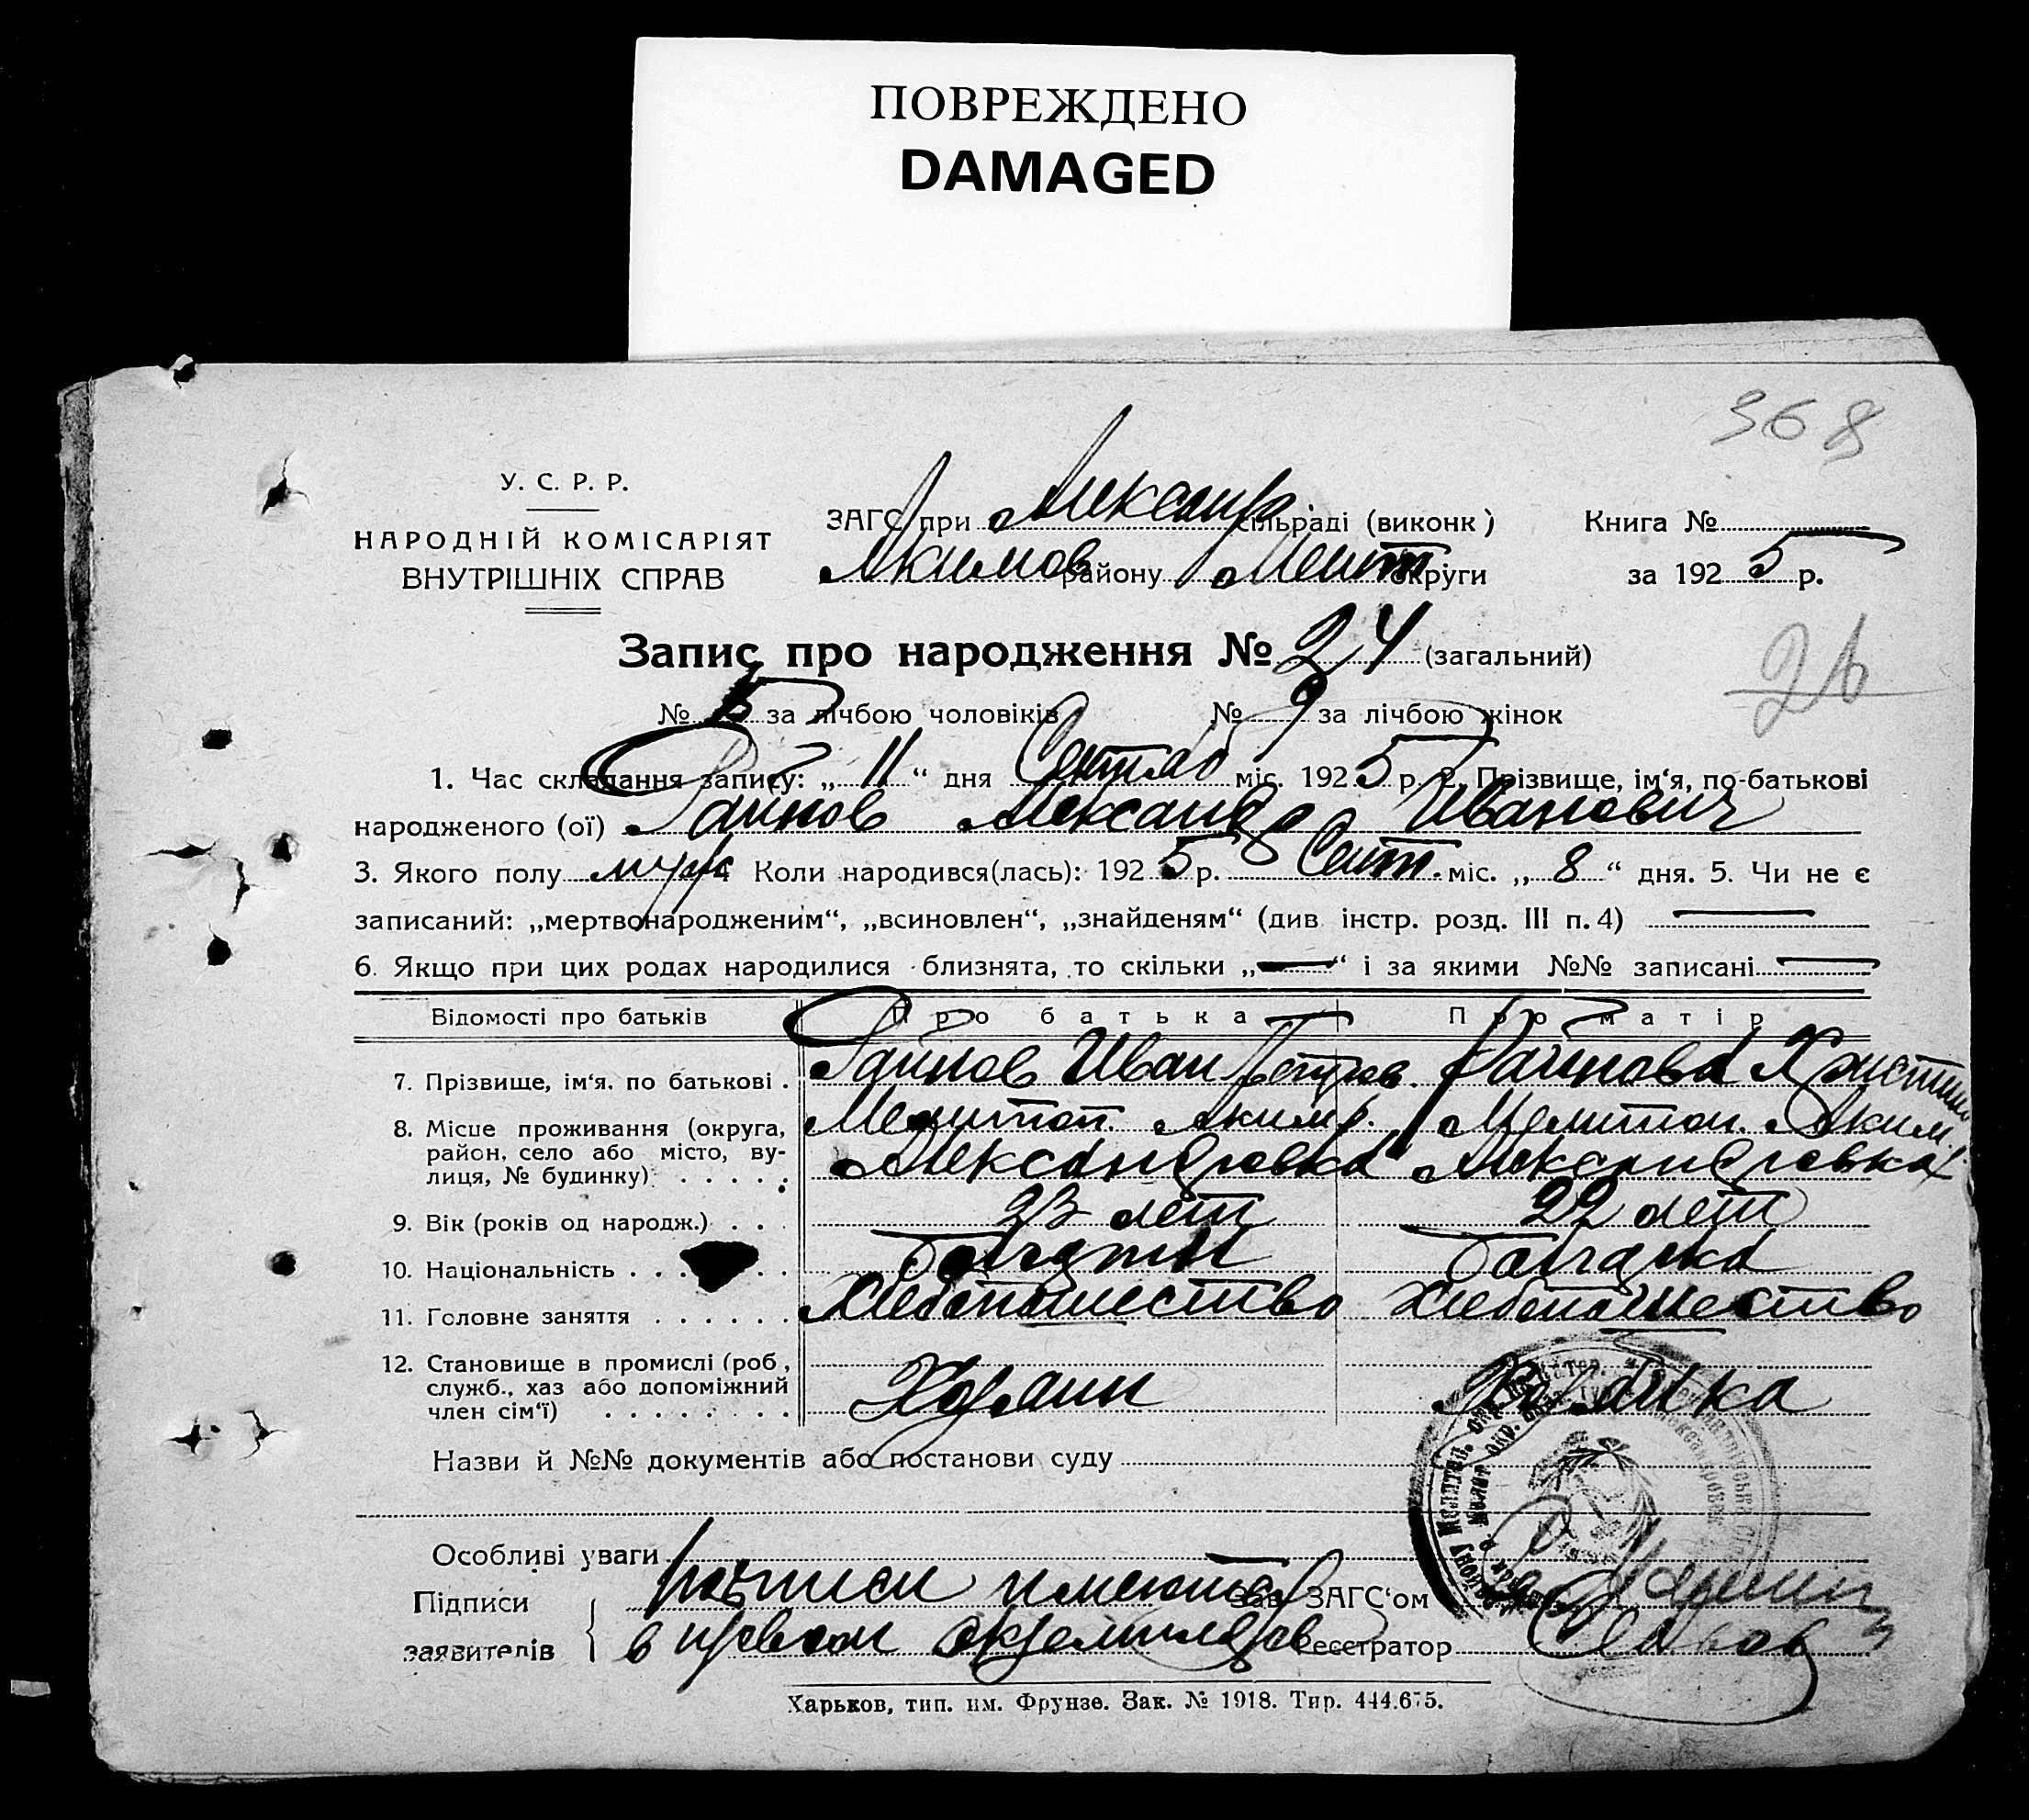 ПОВРЕЖДЕНО
DAMAGED
368
У. С. Р. Р.
НАРОДНІЙ КОМІСАРІЯТ
ВНУТРІШНІХ СПРАВ
ЗАГС при Александр сільраді (виконк)
Акимов району Мелит округи
Книга №
за 1925 р.
Запис про народження № 24 (загальний)
26
№ за лічбою чоловіків № 9 за лічбою жінок
1. Час складання запису: „ 11 “ дня Сентяб міс. 1925 р. 2. Прізвище, ім‘я, по-батькові
народженого (ої) Райнов Александр Иванович
3. Якого полу муж 4 Коли народився(лась): 1925 р. Сент. міс. „ 8 “ дня. 5. Чи не є
записаний: „мертвонародженим“, „всиновлен“, „знайденям“ (див інстр. розд. III п. 4) —
6. Якщо при цих родах народилися близнята, то скільки „—“ і за якими №№ записані —
Відомості про батьків Про батька Про матір
7. Прізвище, ім‘я, по батькові . Райнов Иван Петров. Райнова Христина
8. Місце проживання (округа, район, село або місто, вулиця, № будинку) . . . . . Мелитоп. Аким р. Александровка Мелитоп. Аким. Александровка
9. Вік (років од народж.) . . . 23 лет 22 лет
10. Національність . . . . . . Болгарин Болгарка
11. Головне заняття . . . . . . Хлебопашество Хлебопашество
12. Становище в промислі (роб, служб., хаз або допоміжний член сім‘ї) . . . . . . . .
Назви й №№ документів або постанови суду
Особливі уваги
Підписи заявителів { росписи имеются
в первом экземпляров
Зав. ЗАГС‘ом
Реєстратор
Харьков, тип. им. Фрунзе. Зак. № 1918. Тир. 444.675.